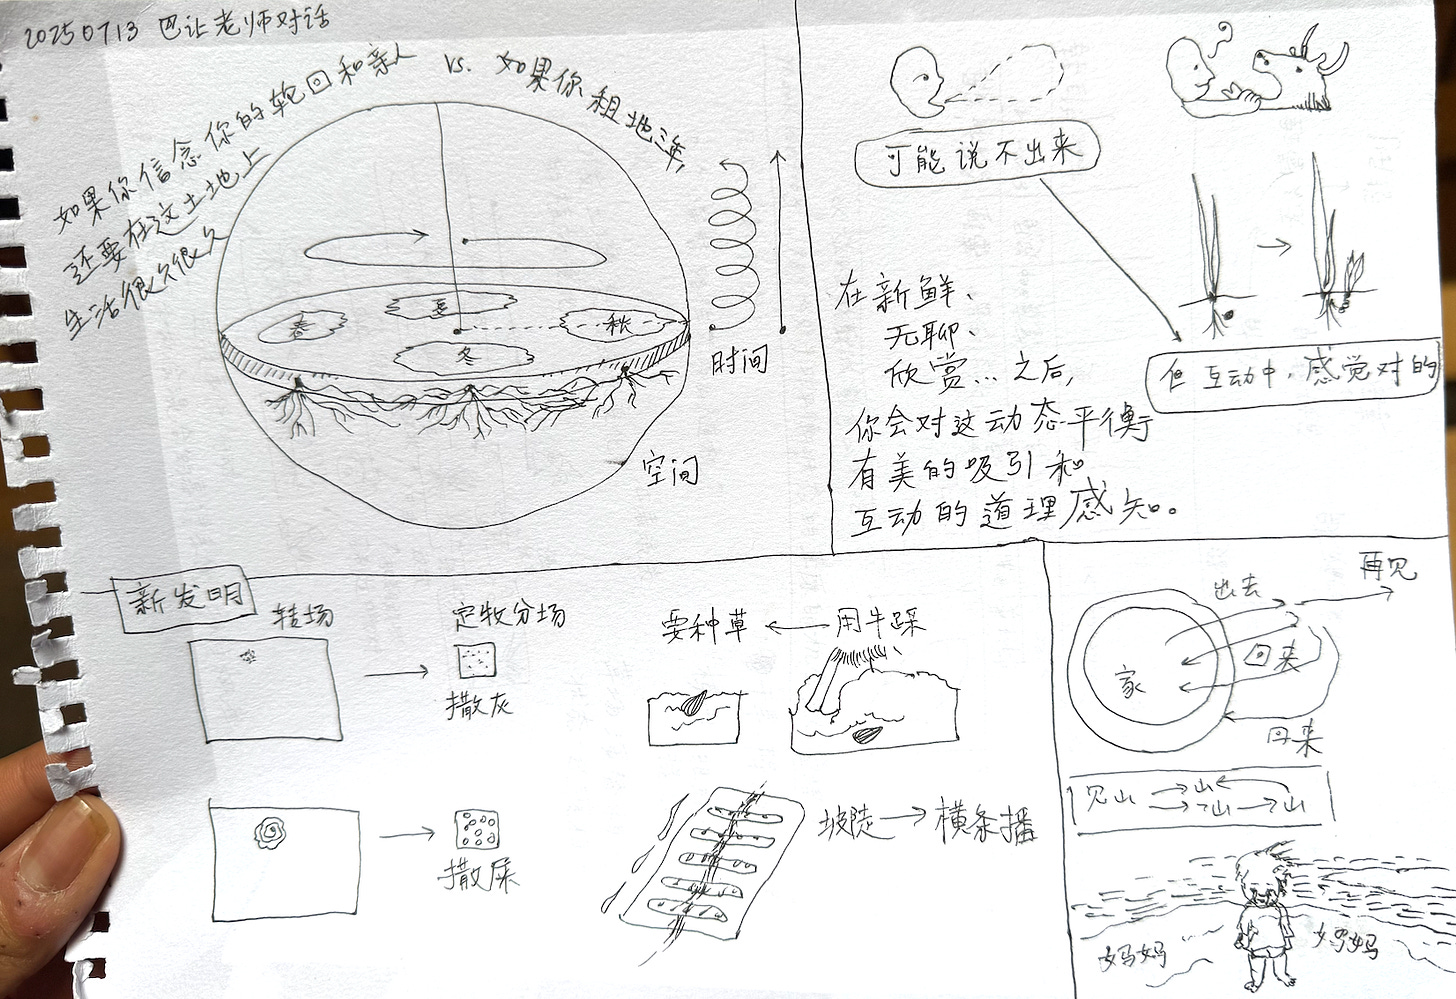 20250713 巴让老师对话
如果你信念你的轮回和亲人
还要在这土地上
生活很久很久
vs. 如果你租地三年,
春
夏
秋
冬
时间
空间
可能说不出来
但互动中,感觉对的
在新鲜、
无聊、
欣赏...之后,
你会对这动态平衡
有美的吸引和
互动的道理感知。
新发明
转场
定牧分场
撒灰
撒尿
要种草
用牛踩
坡陡
横条播
家
出去
再见
回来
回来
见山
山
山
山
妈妈
妈妈